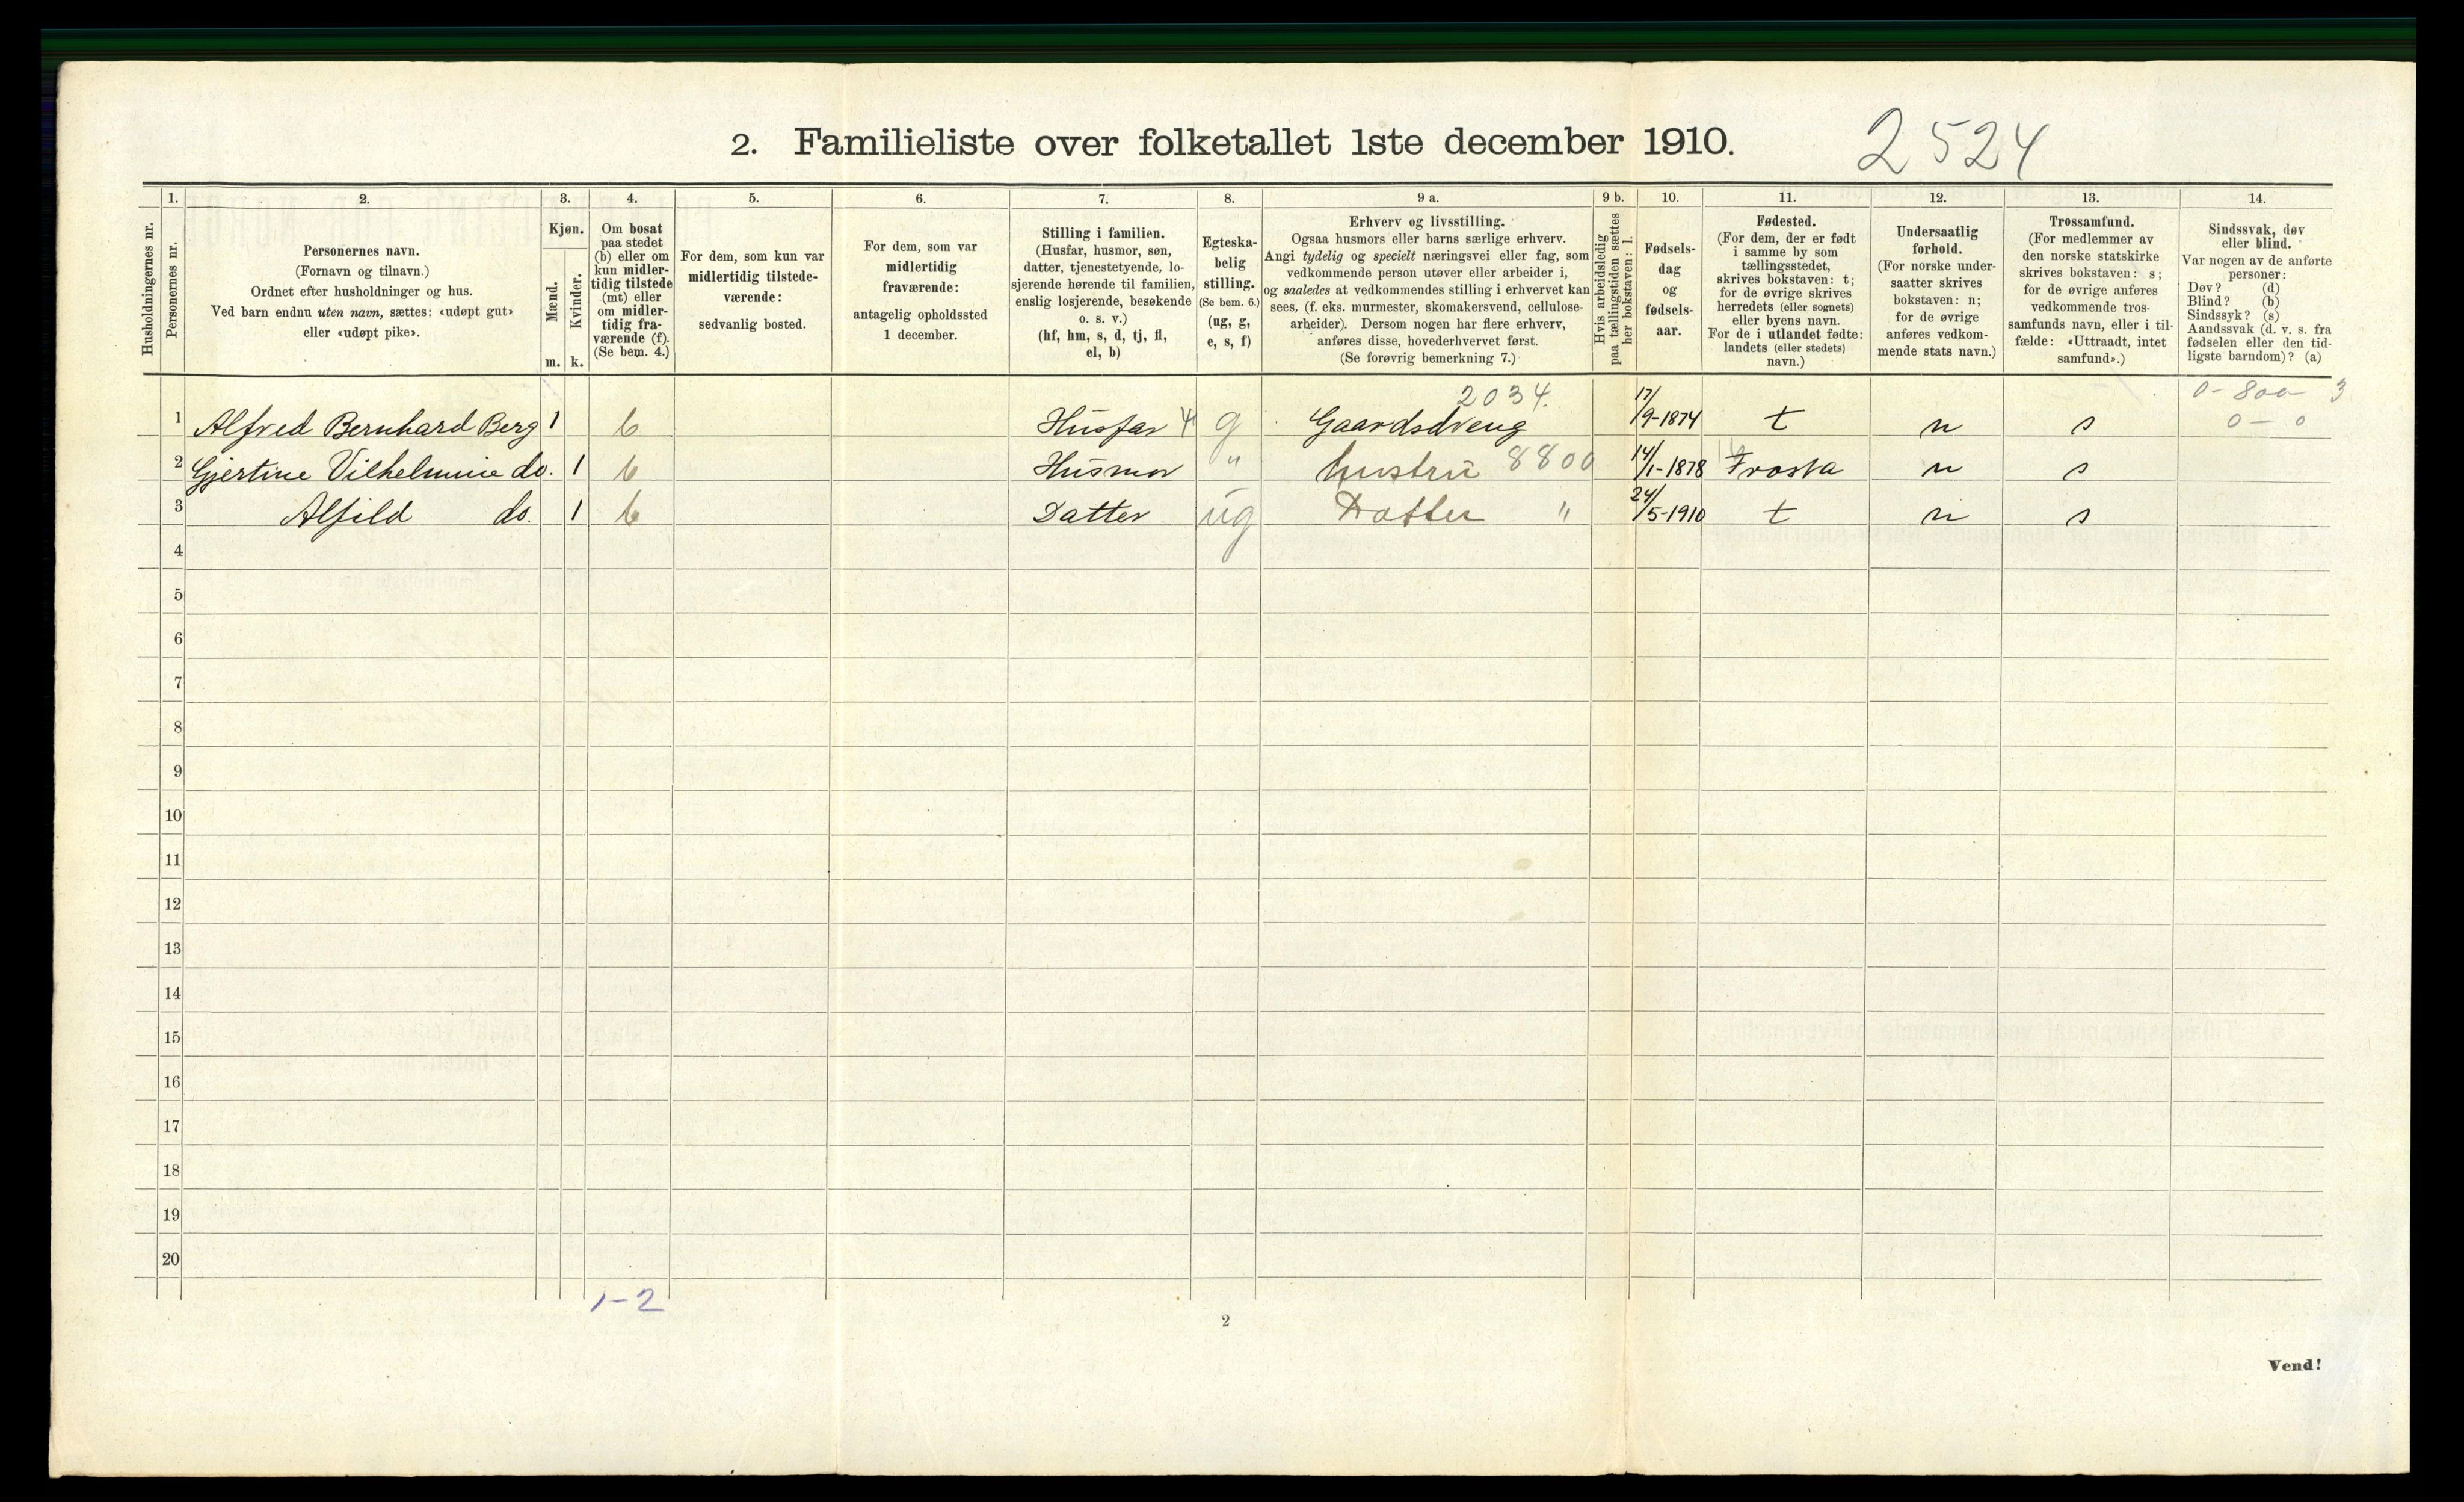 2. Familieliste over folketallet 1ste december 1910. 2524
Husholdningernes nr.
1.
Personernes nr.
2.
Personernes navn.
(Fornavn og tilnavn.)
Ordnet efter husholdninger og hus.
Ved barn endnu uten navn, sættes: «udøpt gut»
eller «udøpt pike».
3.
Kjøn.
Mænd.
Kvinder.
m. k.
4.
Om bosat
paa stedet
(b) eller om
kun midler-
tidig tilstede
(mt) eller
om midler-
tidig fra-
værende (f).
(Se bem. 4.)
5.
For dem, som kun var
midlertidig tilstede-
værende:
sedvanlig bosted.
6.
For dem, som var
midlertidig
fraværende:
antagelig opholdssted
1 december.
7.
Stilling i familien.
(Husfar, husmor, søn,
datter, tjenestetyende, lo-
sjerende hørende til familien,
enslig losjerende, besøkende
o. s. v.)
(hf, hm, s, d, tj, fl,
el, b)
8.
Egteska-
belig
stilling.
(Se bem. 6.)
(ug, g,
e, s, f)
9 a.
Erhverv og livsstilling.
Ogsaa husmors eller barns særlige erhverv.
Angi tydelig og specielt næringsvei eller fag, som
vedkommende person utøver eller arbeider i,
og saaledes at vedkommendes stilling i erhvervet kan
sees, (f. eks. murmester, skomakersvend, cellulose-
arbeider). Dersom nogen har flere erhverv,
anføres disse, hovederhvervet først.
(Se forøvrig bemerkning 7.)
9 b.
Hvis arbeidsledig
paa tællingstiden sættes
her bokstaven: l.
10.
Fødsels-
dag
og
fødsels-
aar.
11.
Fødested.
(For dem, der er født
i samme by som
tællingsstedet,
skrives bokstaven: t;
for de øvrige skrives
herredets (eller sognets)
eller byens navn.
For de i utlandet fødte:
landets (eller stedets)
navn.)
12.
Undersaatlig
forhold.
(For norske under-
saatter skrives
bokstaven: n;
for de øvrige
anføres vedkom-
mende stats navn.)
13.
Trossamfund.
(For medlemmer av
den norske statskirke
skrives bokstaven: s;
for de øvrige anføres
vedkommende tros-
samfunds navn, eller i til-
fælde: «Uttraadt, intet
samfund».)
14.
Sindssvak, døv
eller blind.
Var nogen av de anførte
personer:
Døv? (d)
Blind? (b)
Sindssyk? (s)
Aandssvak (d. v. s. fra
fødselen eller den tid-
ligste barndom)? (a)
2034. 0-800- 3
1 Alfred Bernhard Berg 1 b Husfar 4 g Gaardsdreng 17/9-1874 t n s 0-0
2 Gjertine Vilhelmine do. 1 b Husmor " hustru 8800 14/1-1878 Frosta n s
3 Alfild do. 1 b Datter ug Datter " 24/5-1910 t n s
4
5
6
7
8
9
10
11
12
13
14
15
16
17
18
19
20
1-2
2
Vend!